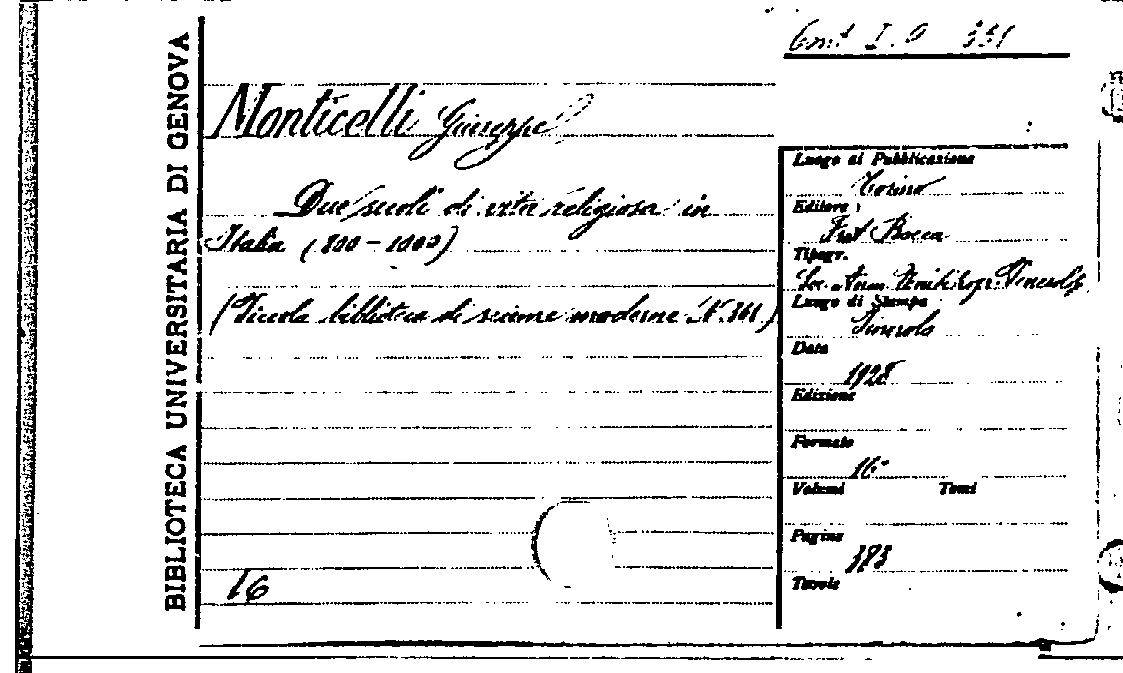 BIBLIOTECA UNIVERSITARIA DI GENOVA
I. 331
Monticelli Giuseppe
Due secoli di vita religiosa in
Italia (800-1000)
(Piccola biblioteca di scienze moderne N.)
16
Luogo di Pubblicazione
Torino
Editore
Frat Bocca
Tipogr.
Luogo di Stampa
Pinerolo
Data
1928
Edizione
Formato
16°
Volumi Tomi
Pagine
383
Tavole